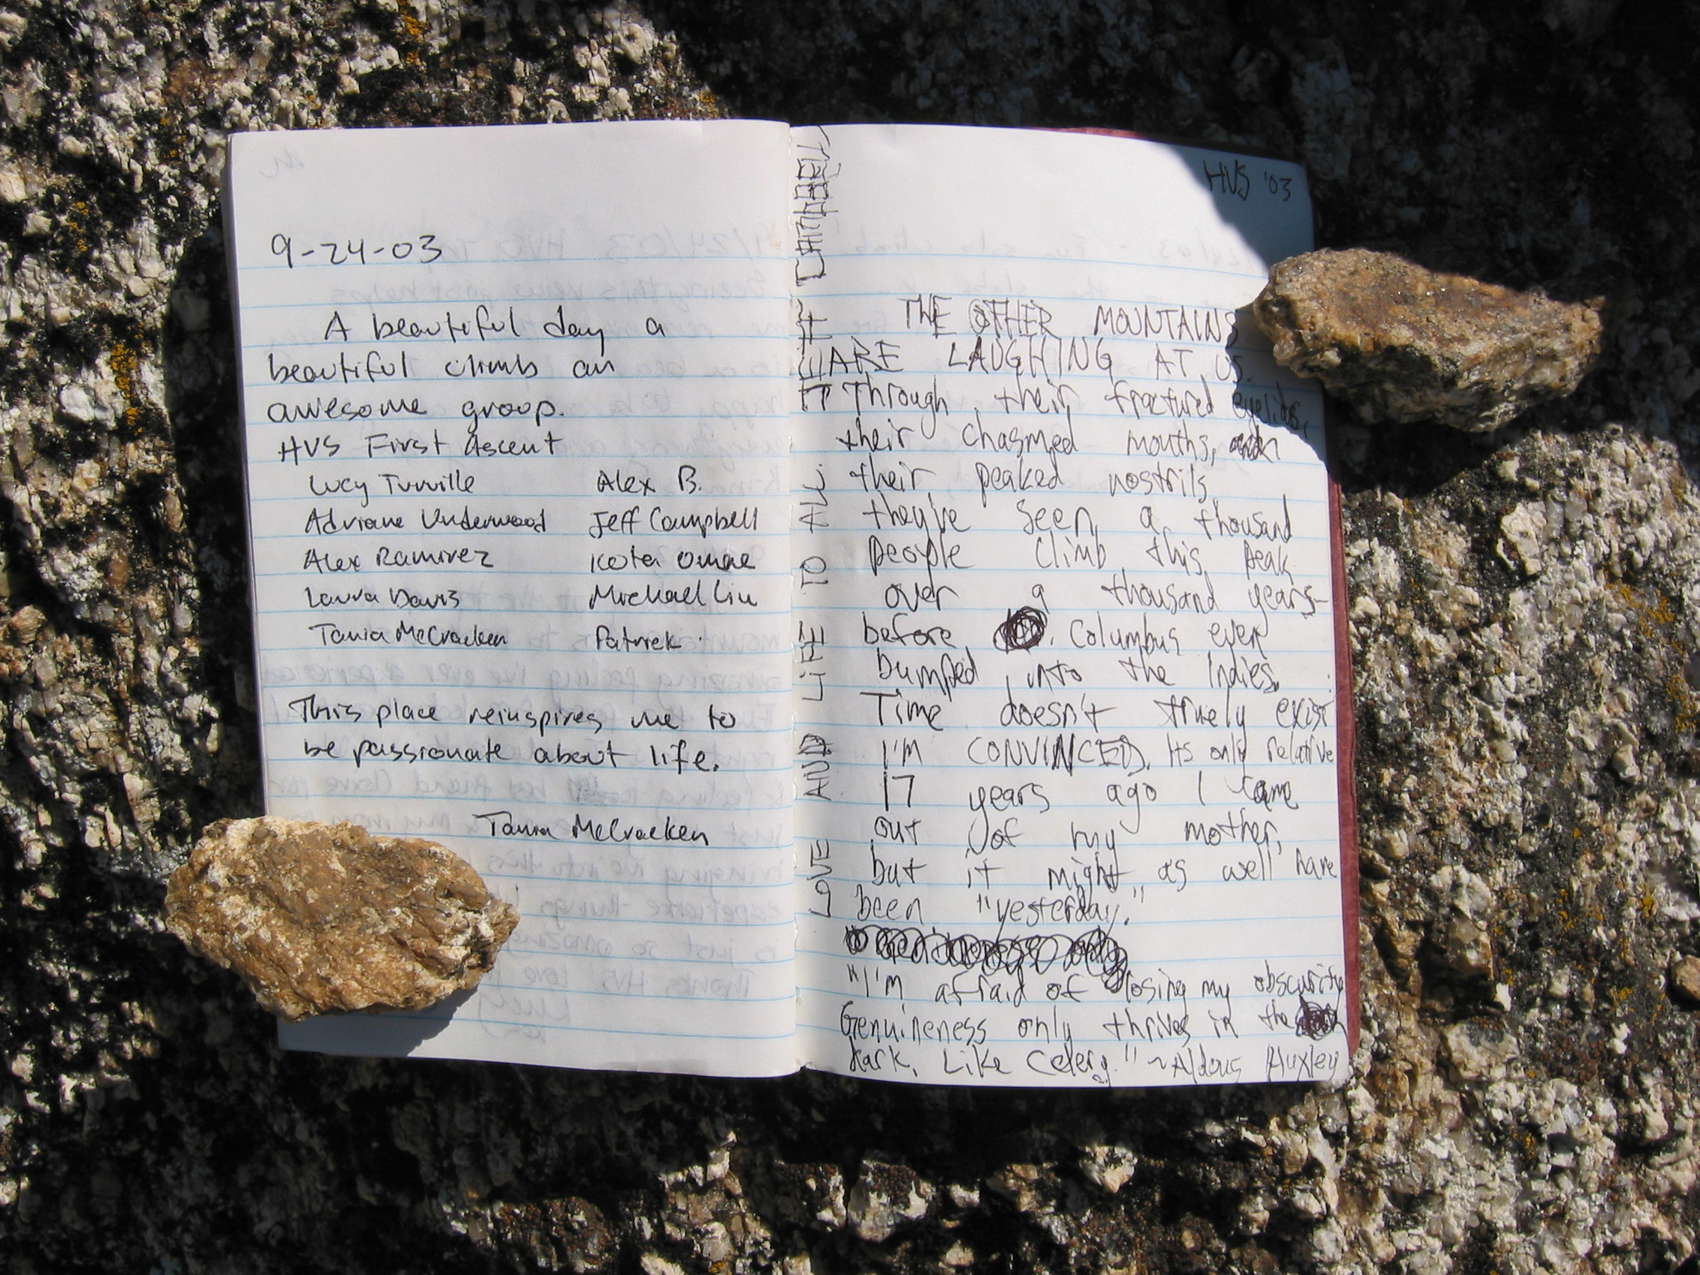 9-24-03
A beautiful day a
beautiful climb an
awesome group.
HVS First Ascent
Lucy Tuville Alex B.
Adriane Underwood Jeff Campbell
Alex Ramirez Kotei Omae
Laura Davis Michael Liu
Tania McCracken Patrick
This place reinspires me to
be passionate about life.
Tania McCracken
HVS '03
THE OTHER MOUNTAINS
ARE LAUGHING AT US.
Through their fractured eyelids,
their chasmed mouths,
their peaked nostrils,
they've seen a thousand
people climb this peak
over a thousand years-
before Columbus even
bumped into the Indies.
Time doesn't truely exist
I'M CONVINCED. Its only relative
17 years ago I came
out of my mother,
but it might as well have
been "yesterday."
"I'm afraid of losing my obscurity
Genuineness only thrives in the
dark. Like Celery." ~Aldous Huxley
LOVE AND LIFE TO ALL. JEFF CAMPBELL